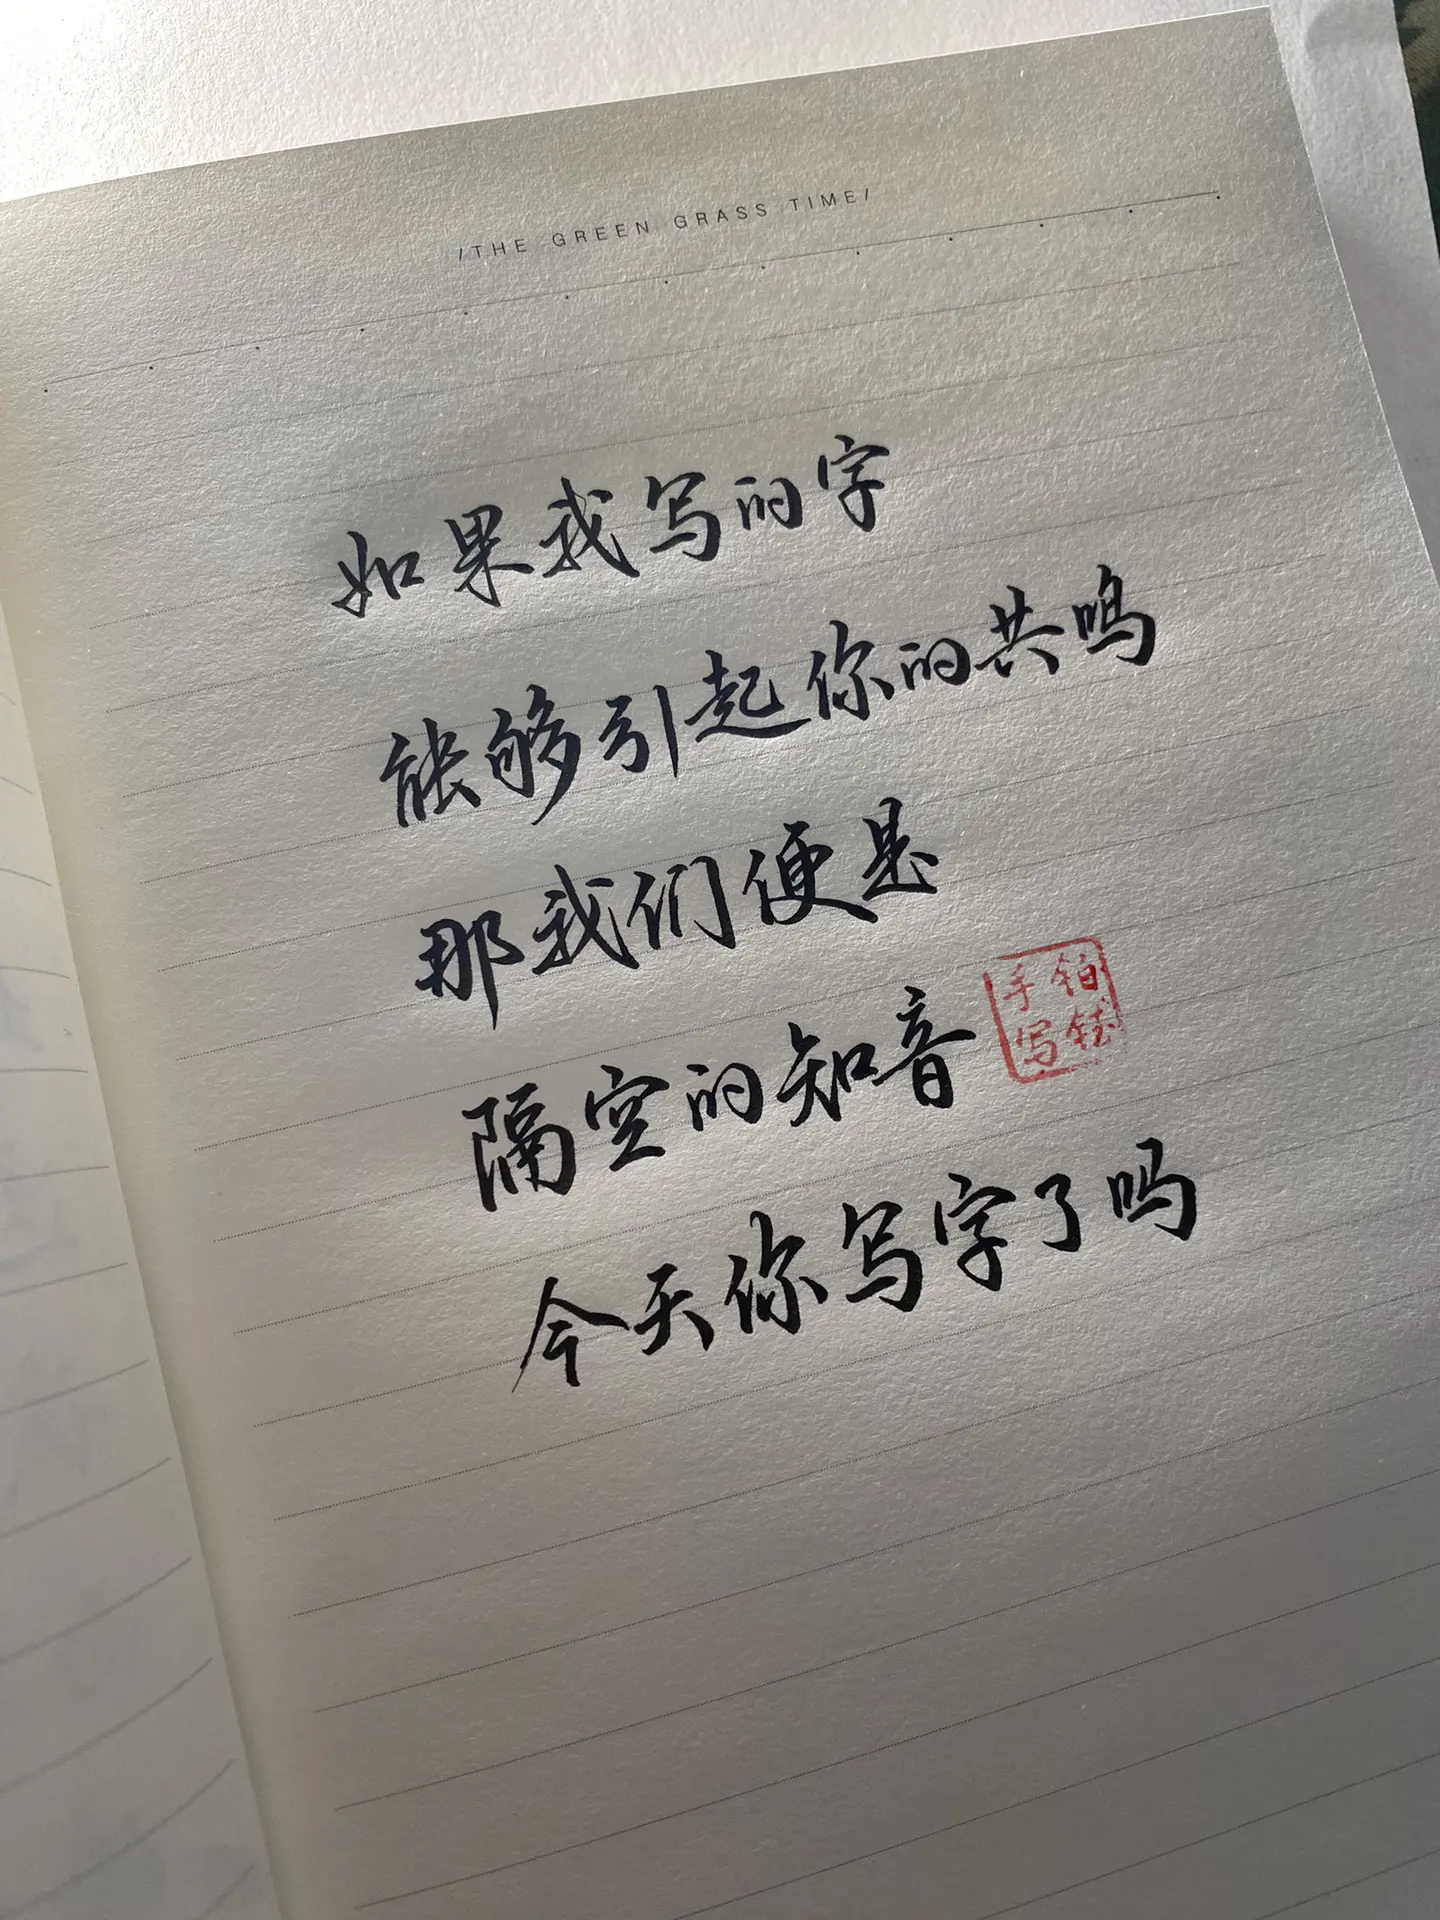 /THE GREEN GRASS TIME/
如果我写的字
能够引起你的共鸣
那我们便是
隔空的知音
铂钰
手写
今天你写字了吗